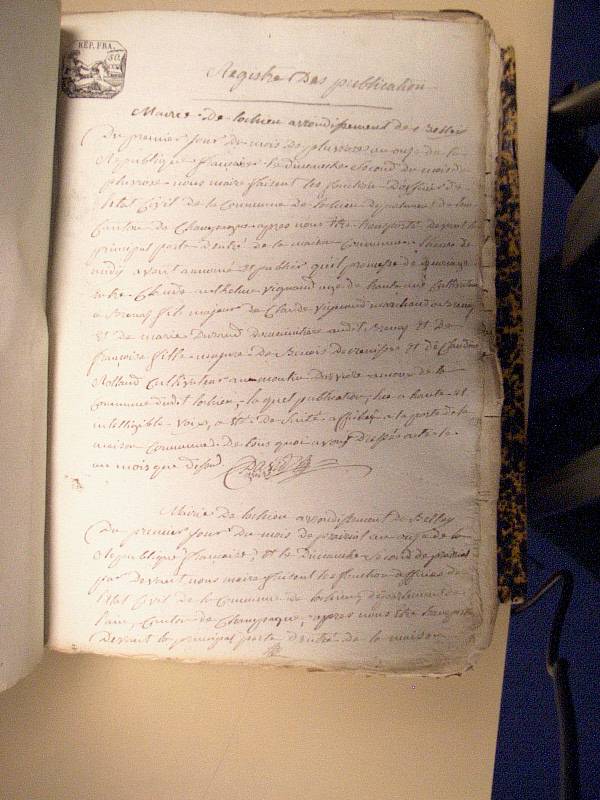 REP. FRA.
Registre Des publication
Mairie De lochieu arrondissement de Belley
Du premier jour du mois de pluviose an onze de la
République française Le dimanche second du mois de
pluviose nous maire faisent les fonction
letat Civil de la Commune de lochieu departement de lain
Canton de Champagne apres nous être transporté devant la
principal porte d'entré de la maison Commune heure de
midy avoir annoncé et publié qu'il promesse de mariage
entre Claude anthelme vignand agé de trente ans cultivateur
a Brenaz fils majeur de Claude vignand marchand a Brenaz
et de marie Durand audit Brenaz et de
françoise fille majeure de Benoit et de Claudine
Rolland Cultivateur au moulin de la
Commune dudit lochieu, la quel publication, lue a haute et
intelligible voix, a été de suite affichée a la porte de la
maison Commune. De tous quoi avons dressé acte le
an mois que dessus
Mairie De lochieu arrondissement de Belley
Du premier jour du mois de prairial an onze de la
République francaise, et le Dimanche second de prairial
par devant nous maire faisent les fonction officier de
letat Civil de la Commune de lochieu, departement de
l'ain, Canton de Champagne, apres nous être transporté
Devant la principal porte d'entré de la maison